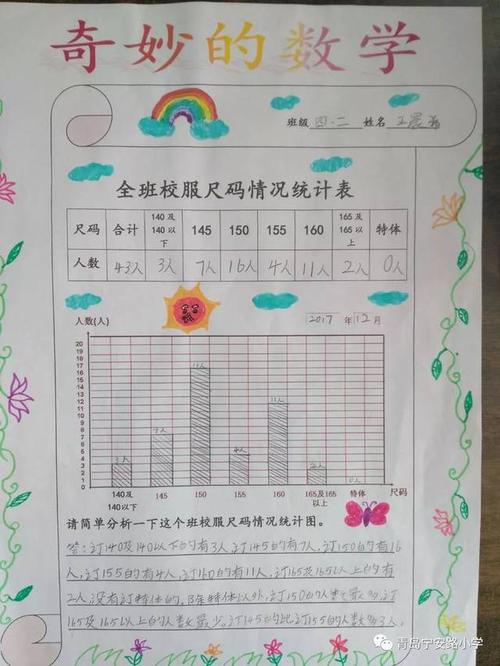 奇妙的数学
班级 四.二 姓名 王
全班校服尺码情况统计表
尺码 合计 140及140以下 145 150 155 160 165及165以上 特体
人数 43人 3人 7人 16人 4人 11人 2人 0人
人数(人) 2017年12月
20
19
18
17
16
15
14
13
12
11
10
9
8
7
6
5
4
3
2
1
0
3人 7人 16人 4人 11人 2人 0人
140及140以下 145 150 155 160 165及165以上 特体 尺码
请简单分析一下这个班校服尺码情况统计图。
答:订140及140以下的有3人,订145的有7人,订150的有16
人,订155的有4人,订160的有11人,订165及165以上的有
2人,没有订特体的,除特体以外,订150的人数最多,订
165及165以上的人数最少,订145的比订155的人数多3人.
青岛宁安路小学